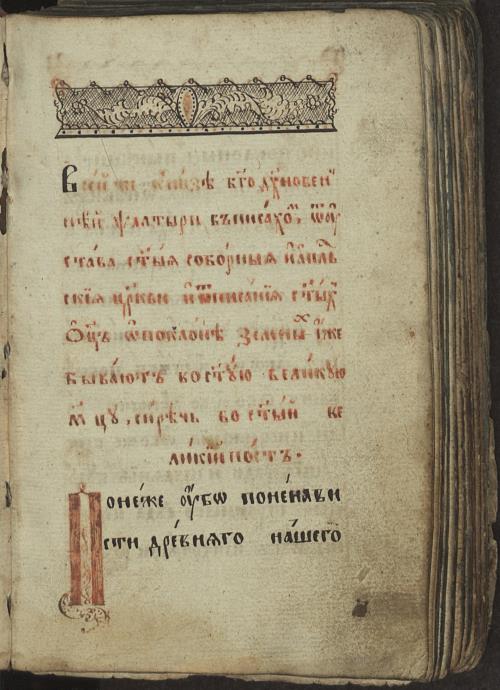 Всей же кнізѣ бг҃одх҃новен
нѣй ѱалтыри впи́сахо́м, ѿ ᲂу҆
става ст҃ы́ѧ собо́рныѧ и҆ а҆пⷭ҇льⷭ
скі́ѧ цр҃кви и҆ ѿ писа́ніѧ ст҃ы́хъ
Ѻ҆ц҃ъ ѡ҆ покло́нѣ земле́ны́ х и҆́же
быва́ютъ во ст҃у́ю вели́кую
м҃цу, си́рѣчь во ст҃ы́й ве
ли́кій по́стъ.
Поне́же ᲂу҆́бѡ по нена́ви
сти дре́внѧго на́шего